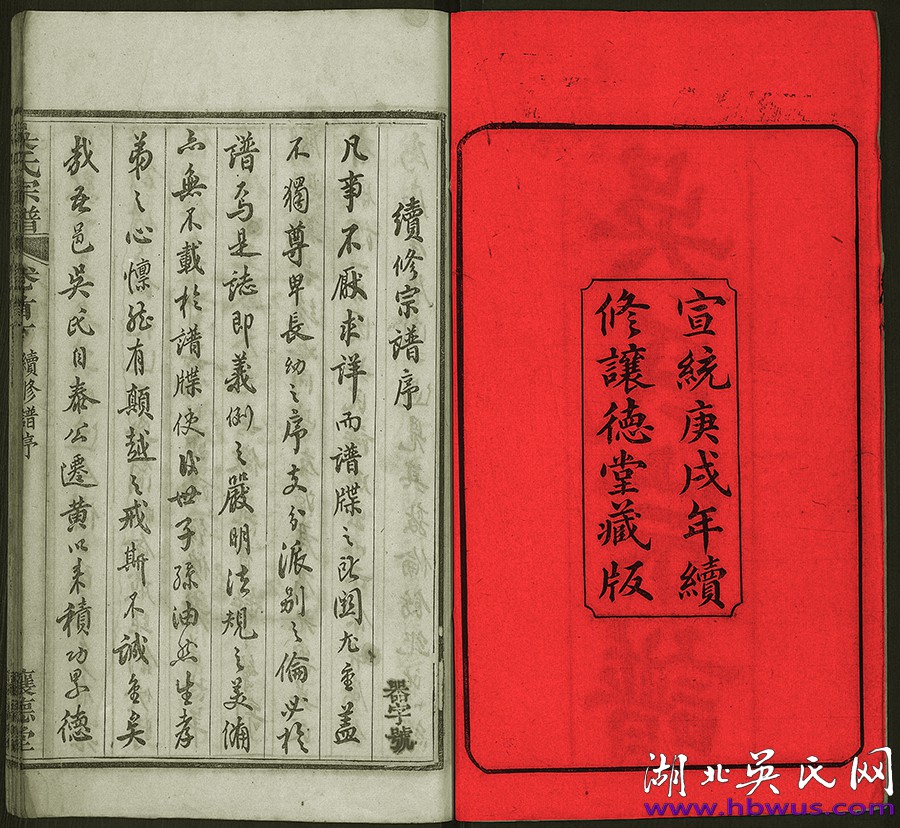 宣統庚戌年續
修讓德堂藏版
續修宗譜序
器字號
凡事不厭求詳而譜牒之所關尤重蓋
不獨尊卑長幼之序支分派別之倫必於
譜焉是誌即義例之嚴明法規之美備
亦無不載於譜牒使後世子孫油然生孝
弟之心懍然有顛越之戒斯不誠重矣
哉吾邑吳氏自泰公遷黄以來積功累德
吳氏宗譜
卷首下
續修譜序
讓德堂
湖北吳氏网
www.hbwus.com